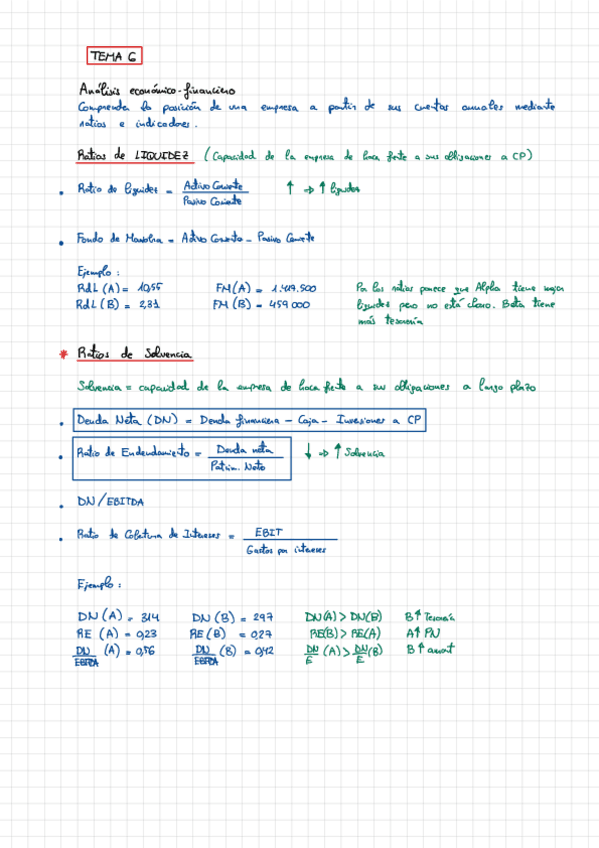 TEMA 6
Análisis económico-financiero
Comprender la posición de una empresa a partir de sus cuentas anuales mediante
ratios e indicadores.
Ratios de LIQUIDEZ (Capacidad de la empresa de hacer frente a sus obligaciones a CP)
• Ratio de liquidez = Activo Corriente / Pasivo Corriente ↑ ⇒ ↑ liquidez
• Fondo de Maniobra = Activo Corriente - Pasivo Corriente
Ejemplo:
RdL (A) = 10,55 FM(A) = 1.419.500 Por los ratios parece que Alpha tiene mejor
RdL (B) = 2,31 FM(B) = 459 000 liquidez pero no está claro. Beta tiene
más tesorería
* Ratios de Solvencia
Solvencia = capacidad de la empresa de hacer frente a sus obligaciones a largo plazo
• Deuda Neta (DN) = Deuda financiera - Caja - Inversiones a CP
• Ratio de Endeudamiento = Deuda neta / Patrim. Neto ↓ ⇒ ↑ Solvencia
• DN/EBITDA
• Ratio de Cobertura de Intereses = EBIT / Gastos por intereses
Ejemplo:
DN (A) = 314 DN (B) = 297 DN(A) > DN(B) B ↑ Tesorería
RE (A) = 0,23 RE (B) = 0,27 RE(B) > RE(A) A ↑ PN
DN/EBITDA (A) = 0,56 DN/EBITDA (B) = 0,42 DN/E (A) > DN/E (B) B ↑ amort